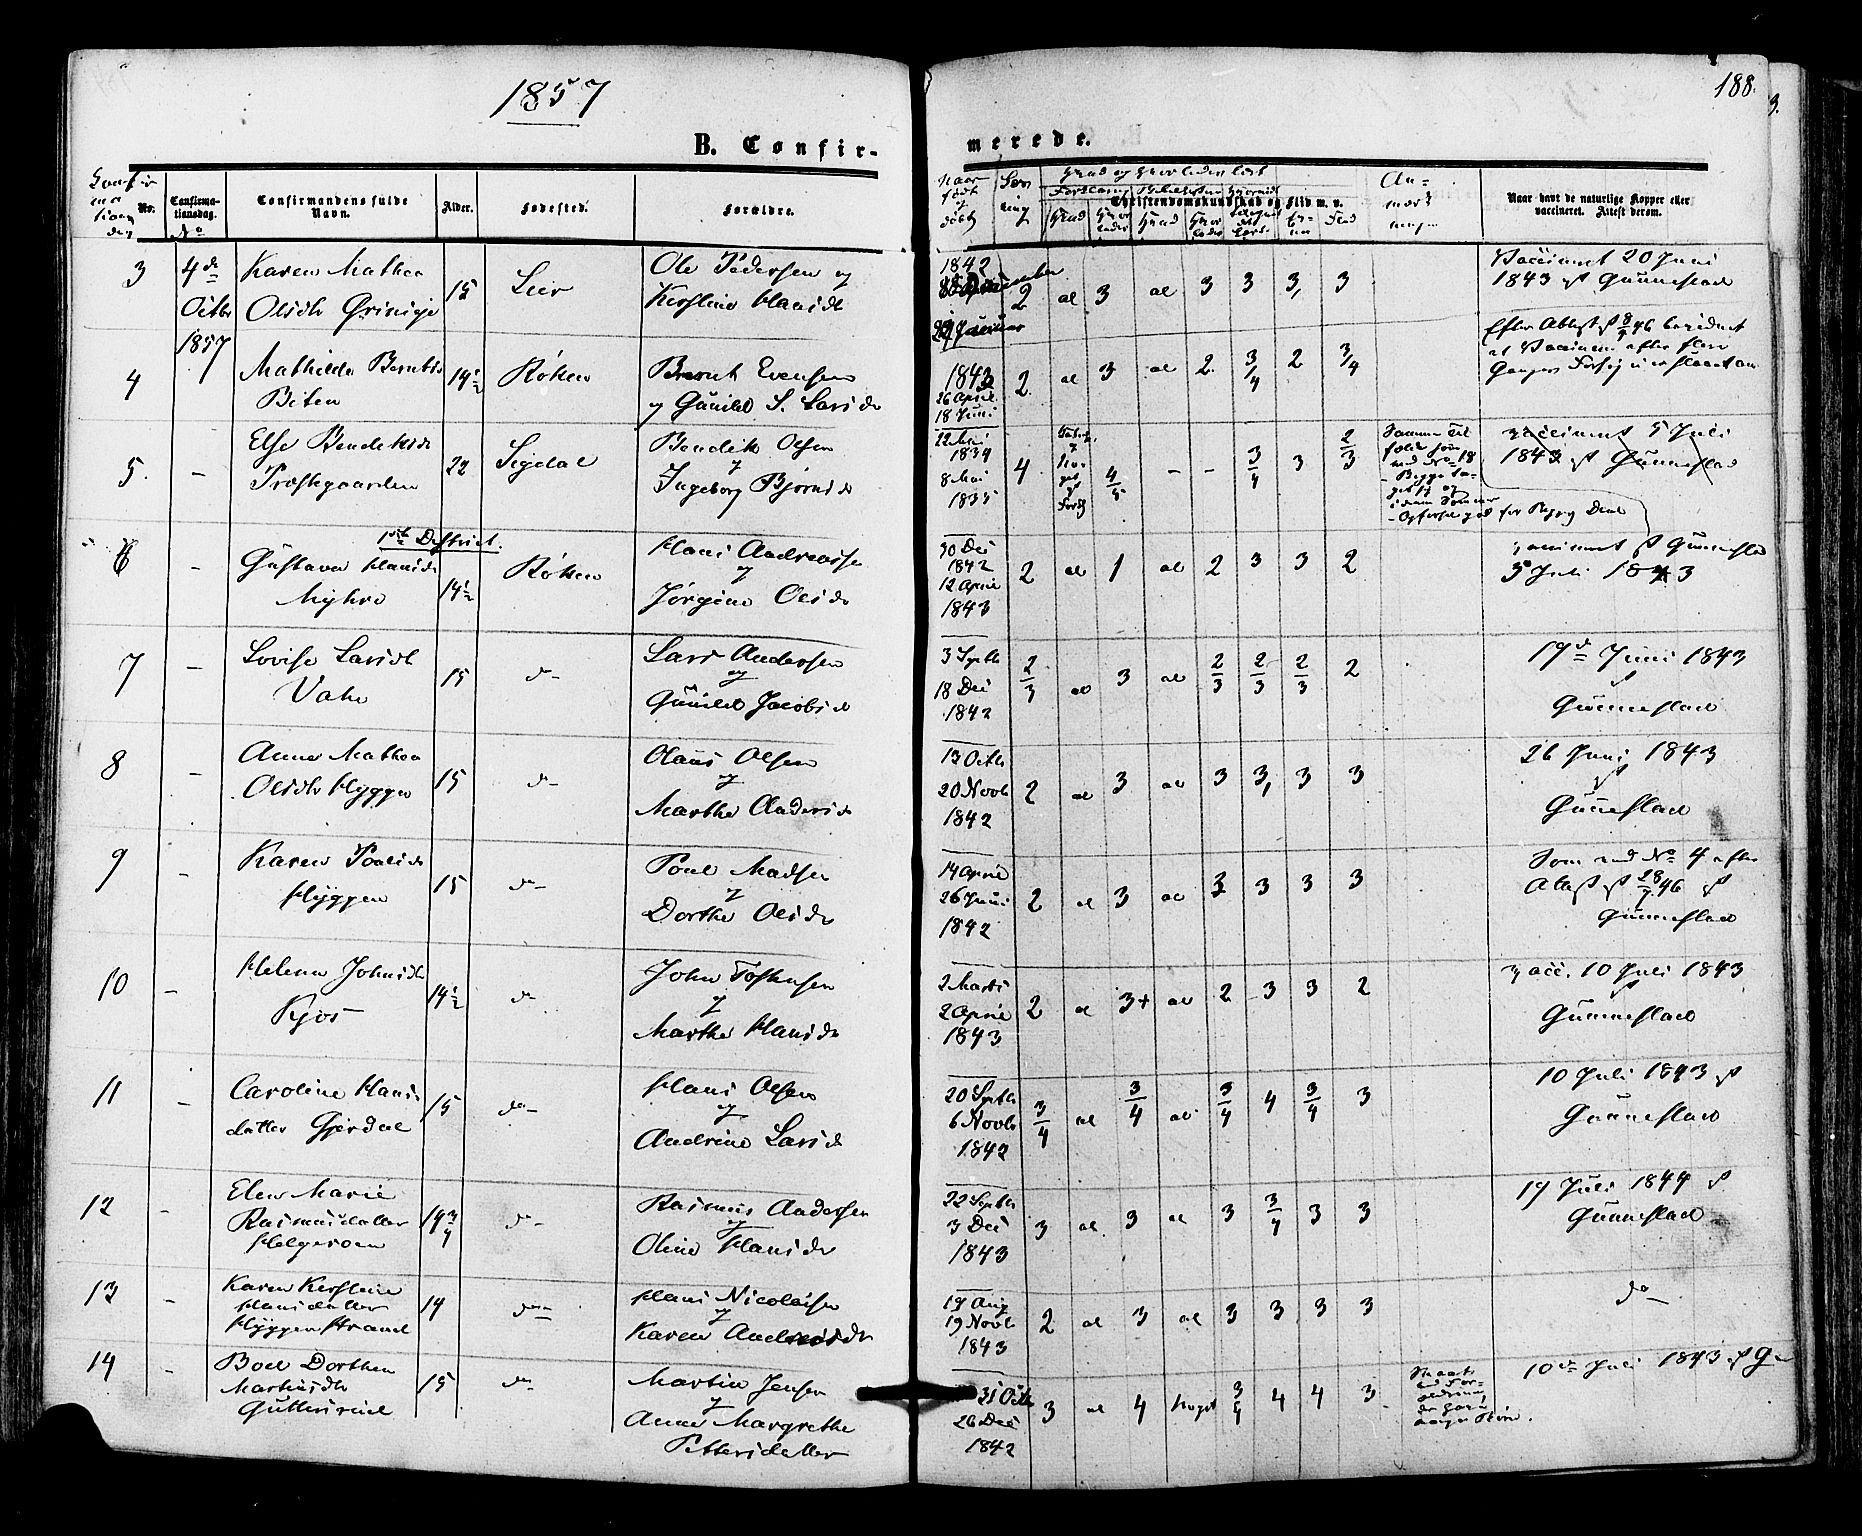 1857
188.
B. Confir-
merede.
No.
Confirma-
tionsdag.
Confirmandens fulde
Navn.
Alder.
Fødested.
Forældre.
Christendomskundskab og Flid m. v.
Naar havt de naturlige Kopper eller
vaccineret. Attest derom.
3
4de
Octbr
1857
Karen Mathea
Olsdtr Grinige
15
Lier
Ole Pedersen og
Kirstine Hansdtr
1842
2 al 3 al 3 3 3, 3
Vaccineret 20 Juni
1843 Gunnestad
4
Mathilde Berntsd
14 1/2
Røken
Bernt Evensen
og Gunild S. Larsdr
1843
26 April
18 Juni
2 al 3 al 2 3/4 2 3/4
5.
-
Else Bendiksdr
Præstgaarden
22
Sigdal
Bendik Olsen
og
Ingeborg Bjørnsdr
22 Mai
1834
8 Mai
1835
4 4/5 - - 3/4 3 2/3
vaccineret 5 Juli
1843 Gunnestad
1ste District.
6
-
Gustava Hansdr
Myhre
14 1/2
Røken
Hans Andreassen
og
Jørgine Olsdr
30 Dec
1842
12 April
1843
2 al 1 al 2 3 3 2
vaccineret Gunnestad
5 Juli 1843
7
-
Lovise Larsdtr
15
do
Lars Andersen
og
Gunild Jacobsd
3 Septb
18 Dec
1842
2/3 al 3 al 2/3 2/3 2/3 2
19de Juni 1843
Gunnestad
8
-
Anne Mathea
Olsdtr Hyggen
15
do
Olaus Olsen
og
Marthe Andersdr
13 Octb
20 Novb
1842
2 al 3 al 3 3, 3 3
26 Juni 1843
Gunnestad
9
-
Karen Poulsdr
Hyggen
15
do
Poul Madsen
og
Dorthe Olsdr
14 April
26 Juni
1842
2 al 3 al 3 3 3 3
Som ved No 4 efter
Gunnestad
10
-
Helene Johnsdtr
Kjos
14 1/2
do
John Tostensen
og
Marthe Hansdr
2 Marts
2 April
1843
2 al 3+ al 2 3 3 2
vacc. 10 Juli 1843
Gunnestad
11
-
Caroline Hans
datter Gjerdal
15
do
Hans Olsen
og
Andrine Larsdr
20 Septb
6 Novb
1842
3/4 al 3/4 al 3/4 4 3/4 3
10 Juli 1843
Gunnestad
12
-
Elen Marie
Rasmusdatter
Helgeroen
14 3/4
do
Rasmus Andersen
og
Oline Hansdr
22 Septb
3 Dec
1843
3 al 3 al 3 3/4 3 3
19 Juli 1844
Gunnestad
13
-
Karen Kirstine
Hansdatter
Hyggenstrand
14
do
Hans Nicolaisen
og
Karen Andreasdr
19 Aug
19 Novb
1843
2 al 3 al 3 3 3 3
do
14
-
Boel Dorthea
Martinsdtr
15
do
Martin Jensen
og
Anne Margrethe
Pettersdatter
31 Octb
26 Dec
1842
3 al 4 noget 3/4 4 4 3
10de Juli 1843